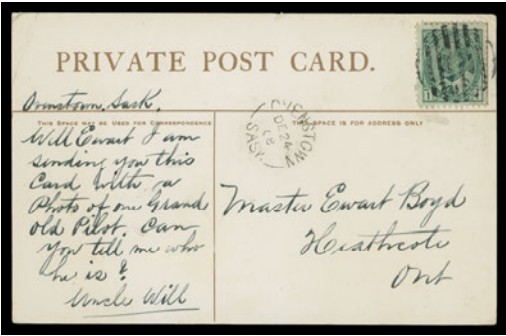 PRIVATE POST CARD.
Ovenstown, Sask.
THIS SPACE MAY BE USED FOR CORRESPONDENCE
THIS SPACE IS FOR ADDRESS ONLY
Will Ewart I am
sending you this
Card with a
Photo of our Grand
old Pilot. Can
you tell me who
he is?
Uncle Will
OVENSTOWN
DE 24
08
SASK
Master Ewart Boyd
Heathcote
Ont
1